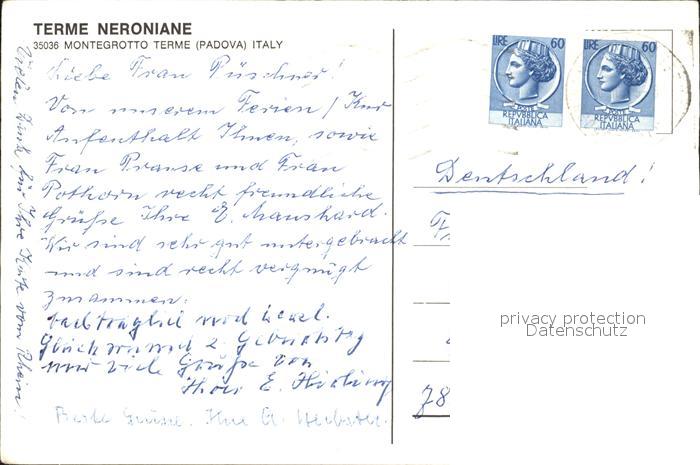 TERME NERONIANE
35036 MONTEGROTTO TERME (PADOVA) ITALY
Liebe Frau Püschner!
Von unserem Ferien / Kur
Aufenthalt Ihnen, sowie
Frau Pranse und Frau
Pothorn recht freundliche
Grüße Ihre E. Manshard.
Wir sind sehr gut untergebracht
und sind recht vergnügt
zusammen.
nachträglich noch
Glückwunsch z. Geburtstag
und viele Grüße von
Ihrer E.
Beste Grüsse. Ihre
Vielen Dank für Ihre Karte vom Rhein!
LIRE 60
POSTE
REPVBBLICA
ITALIANA
LIRE 60
POSTE
REPVBBLICA
ITALIANA
Deutschland!
F
78
privacy protection
Datenschutz